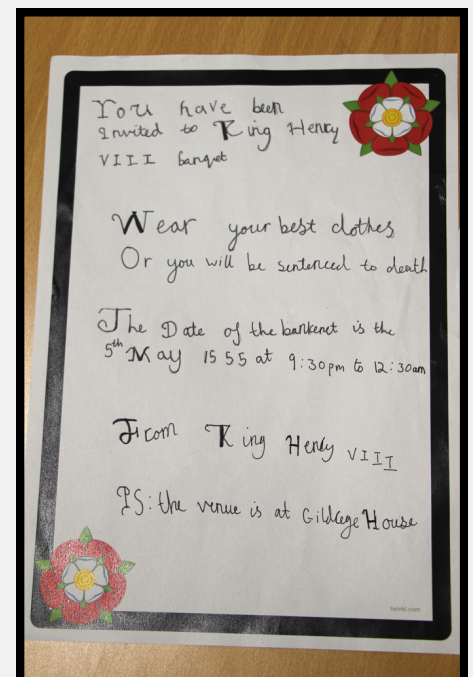 You have been
Invited to King Henry
VIII banquet
Wear your best clothes
Or you will be sentenced to death
The Date of the bankenet is the
5th May 1555 at 9:30pm to 12:30am
From King Henry VIII
PS: the venue is at House
twinkl.com